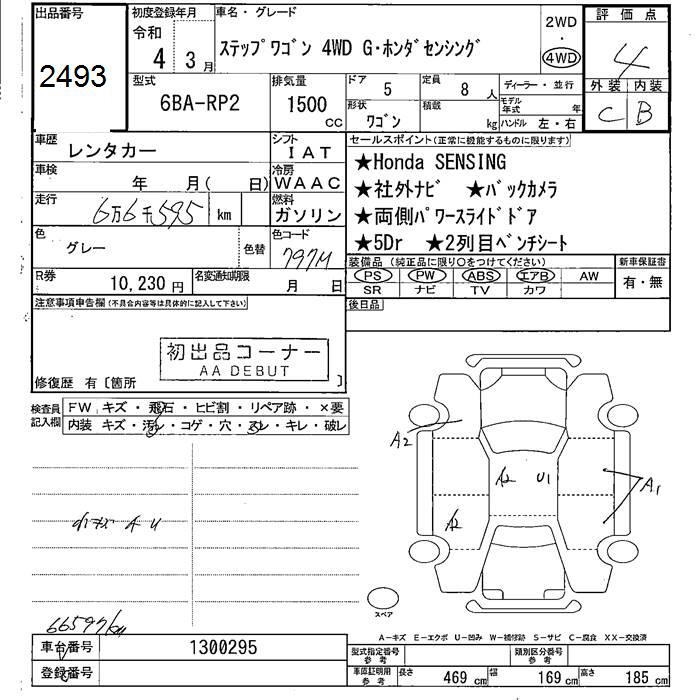 出品番号 初度登録年月 車名・グレード 2WD 評価点
2493 令和 4 3月 ステップワゴン 4WD G・ホンダセンシング ・ 4WD 4
型式 排気量 ドア 5 定員 8人 ディーラー・並行 外装 内装
6BA-RP2 1500 CC 形状 ワゴン 積載 kg モデル年式 年 ハンドル 左・右 C B
車歴 レンタカー シフト IAT セールスポイント(正常に機能するものに限ります)
車検 年 月( 日) 冷房 WAAC ★Honda SENSING
走行 6万6千595 km 燃料 ガソリン ★社外ナビ ★バックカメラ
色 グレー 色替 色コード 797M ★両側パワースライドドア
★5Dr ★2列目ベンチシート
R券 10,230円 名変通知期限 月 日 装備品(純正品に限り○をつけてください) 新車保証書
PS PW ABS エアB AW 有・無
SR ナビ TV カワ
注意事項申告欄(不具合内容等は具体的に記入して下さい) 後日品
初出品コーナー
AA DEBUT
修復歴 有〔箇所 〕
検査員記入欄 FW キズ・飛石・ヒビ割・リペア跡・×要
内装 キズ・汚レ・コゲ・穴・スレ・キレ・破レ
A2
A2 U1 A1
A2
A U
スペア
66597km
A-キズ E-エクボ U-凹み W-補修跡 S-サビ C-腐食 XX-交換済
車台番号 1300295 型式指定番号 参考 類別区分番号 参考
登録番号 車庫証明用 参考 長さ 469cm 幅 169cm 高さ 185cm